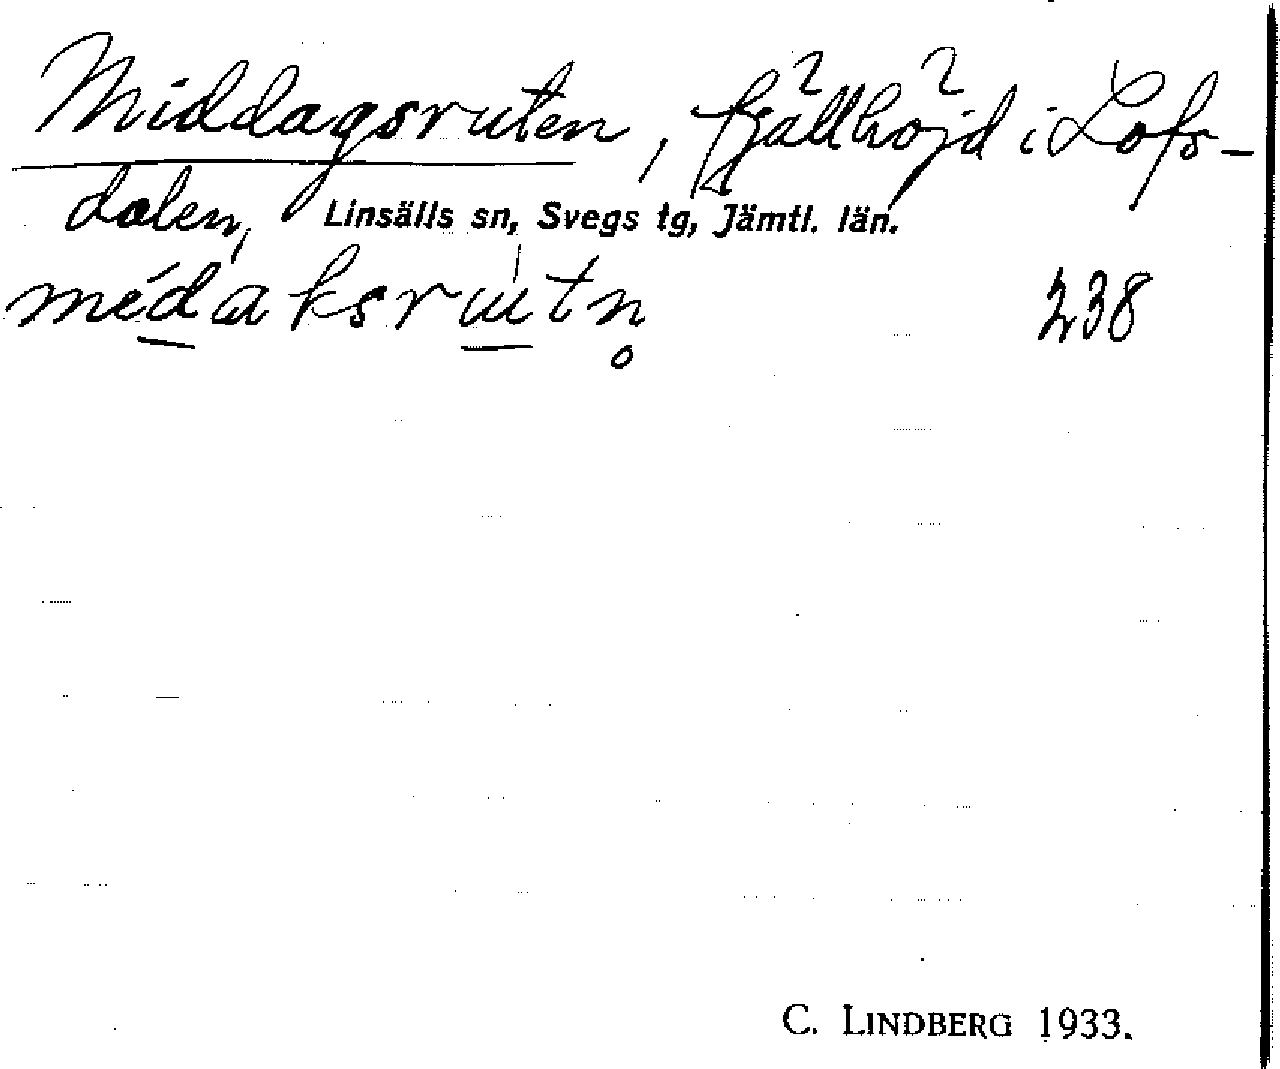 Middagsruten, fjällhöjd i Lofs-
dalen, Linsälls sn, Svegs tg, Jämtl. län.
238
C. LINDBERG 1933.